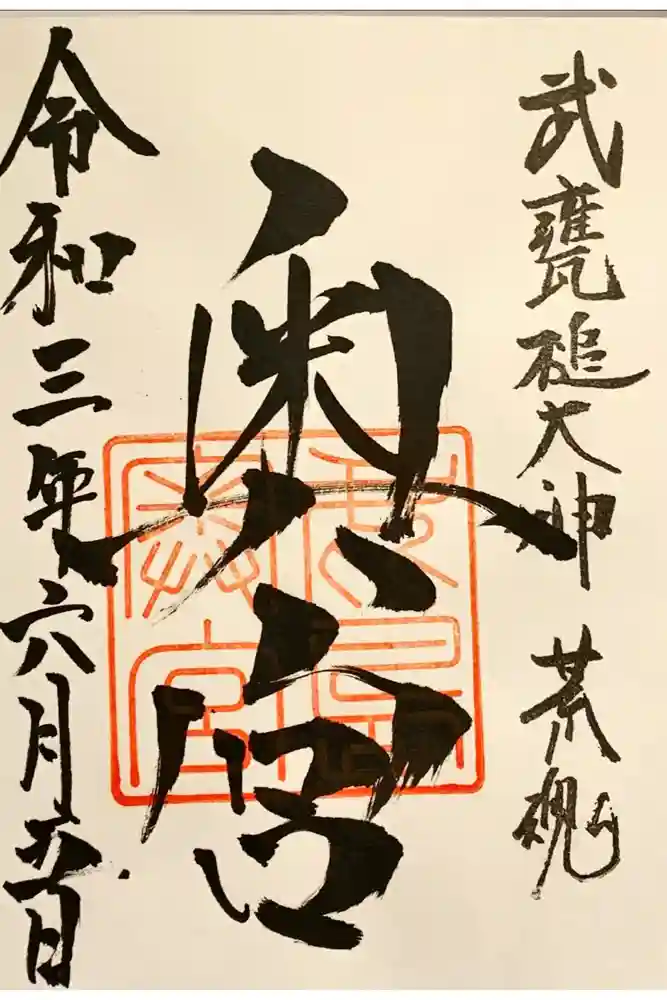 武甕槌大神 荒魂
奥宮
鹿島奥宮
令和三年六月五日